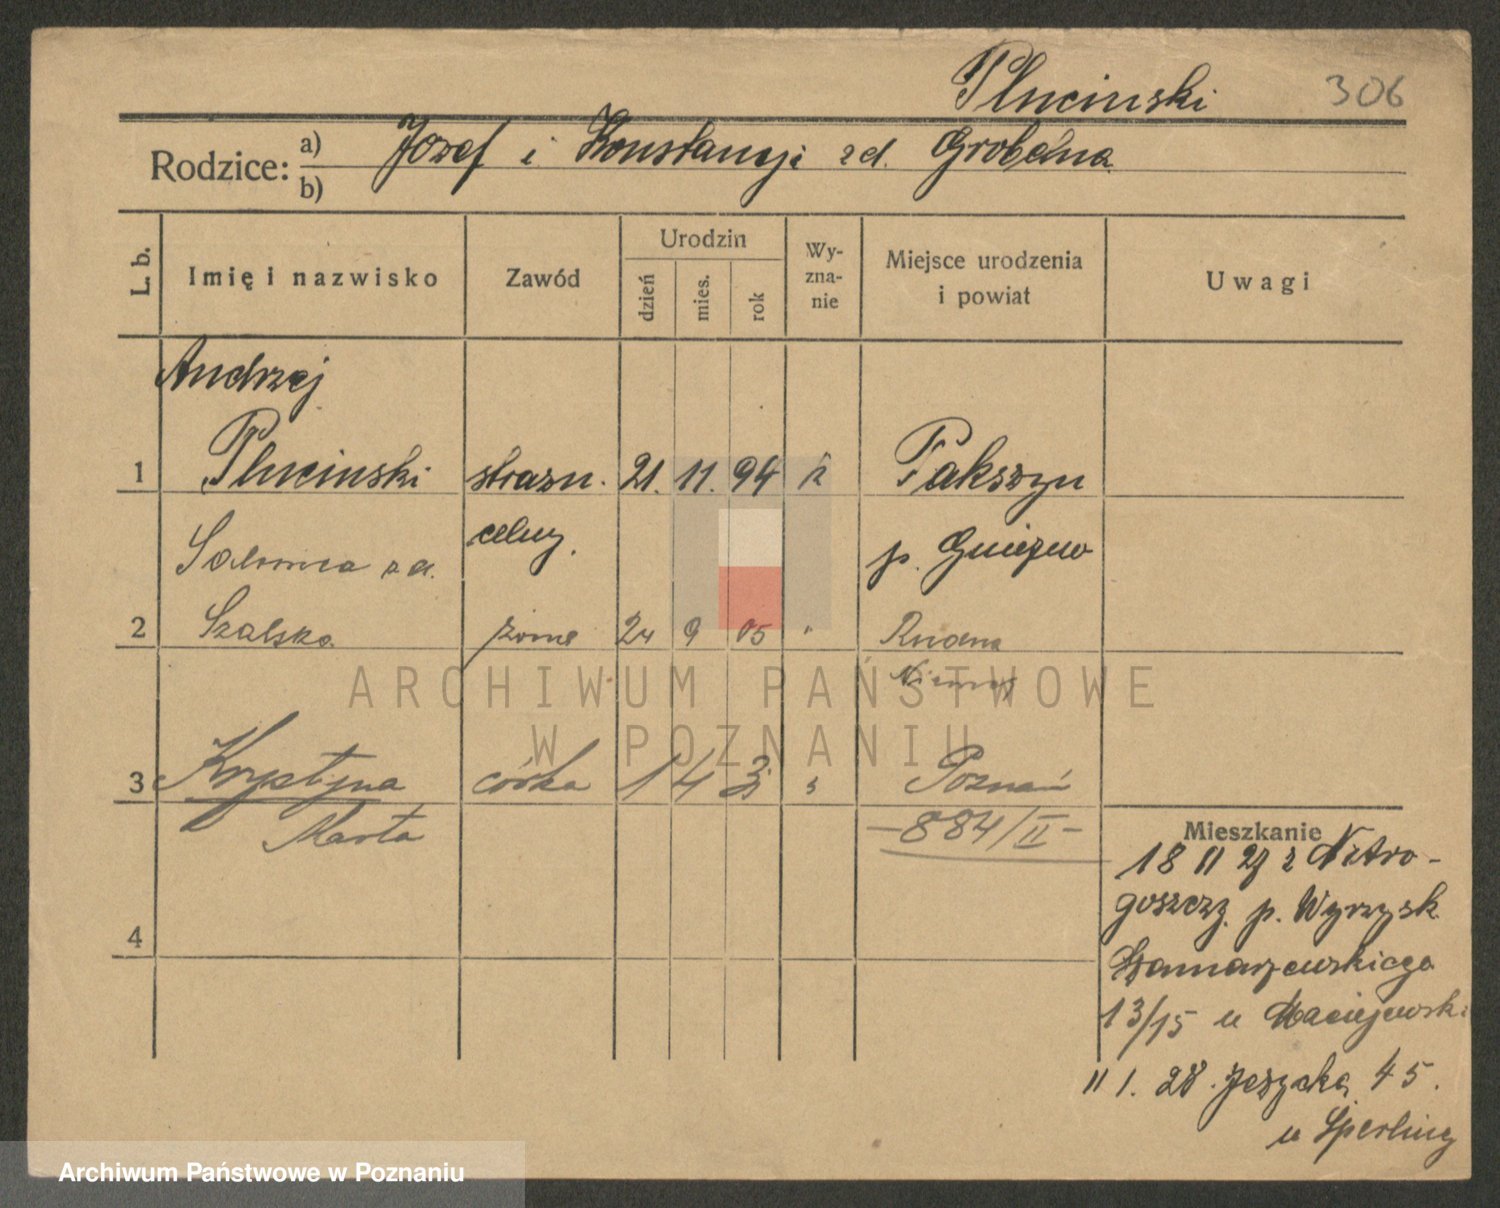 Plucinski 306
Rodzice: a) Józef i Konstancji zd. Grobelna
b)
L. b. Imię i nazwisko Zawód Urodzin dzień mies. rok Wy-zna-nie Miejsce urodzenia i powiat Uwagi
Andrzej
1 Plucinski strazn. 21. 11. 94 Fakszyn
celny. p. Gniezno
Salomea zd.
2 Szalska żona 24 9 05 " Rudna
Niemcy
3 Krystyna córka 1 4 Poznań
Marta -884/II-
4
Mieszkanie
18 11 27 z
p. Wyrzysk
13/15 u Maciejewski
11 1. 28. Jeżycka 45.
u Sperling
ARCHIWUM PAŃSTWOWE
W POZNANIU
Archiwum Państwowe w Poznaniu